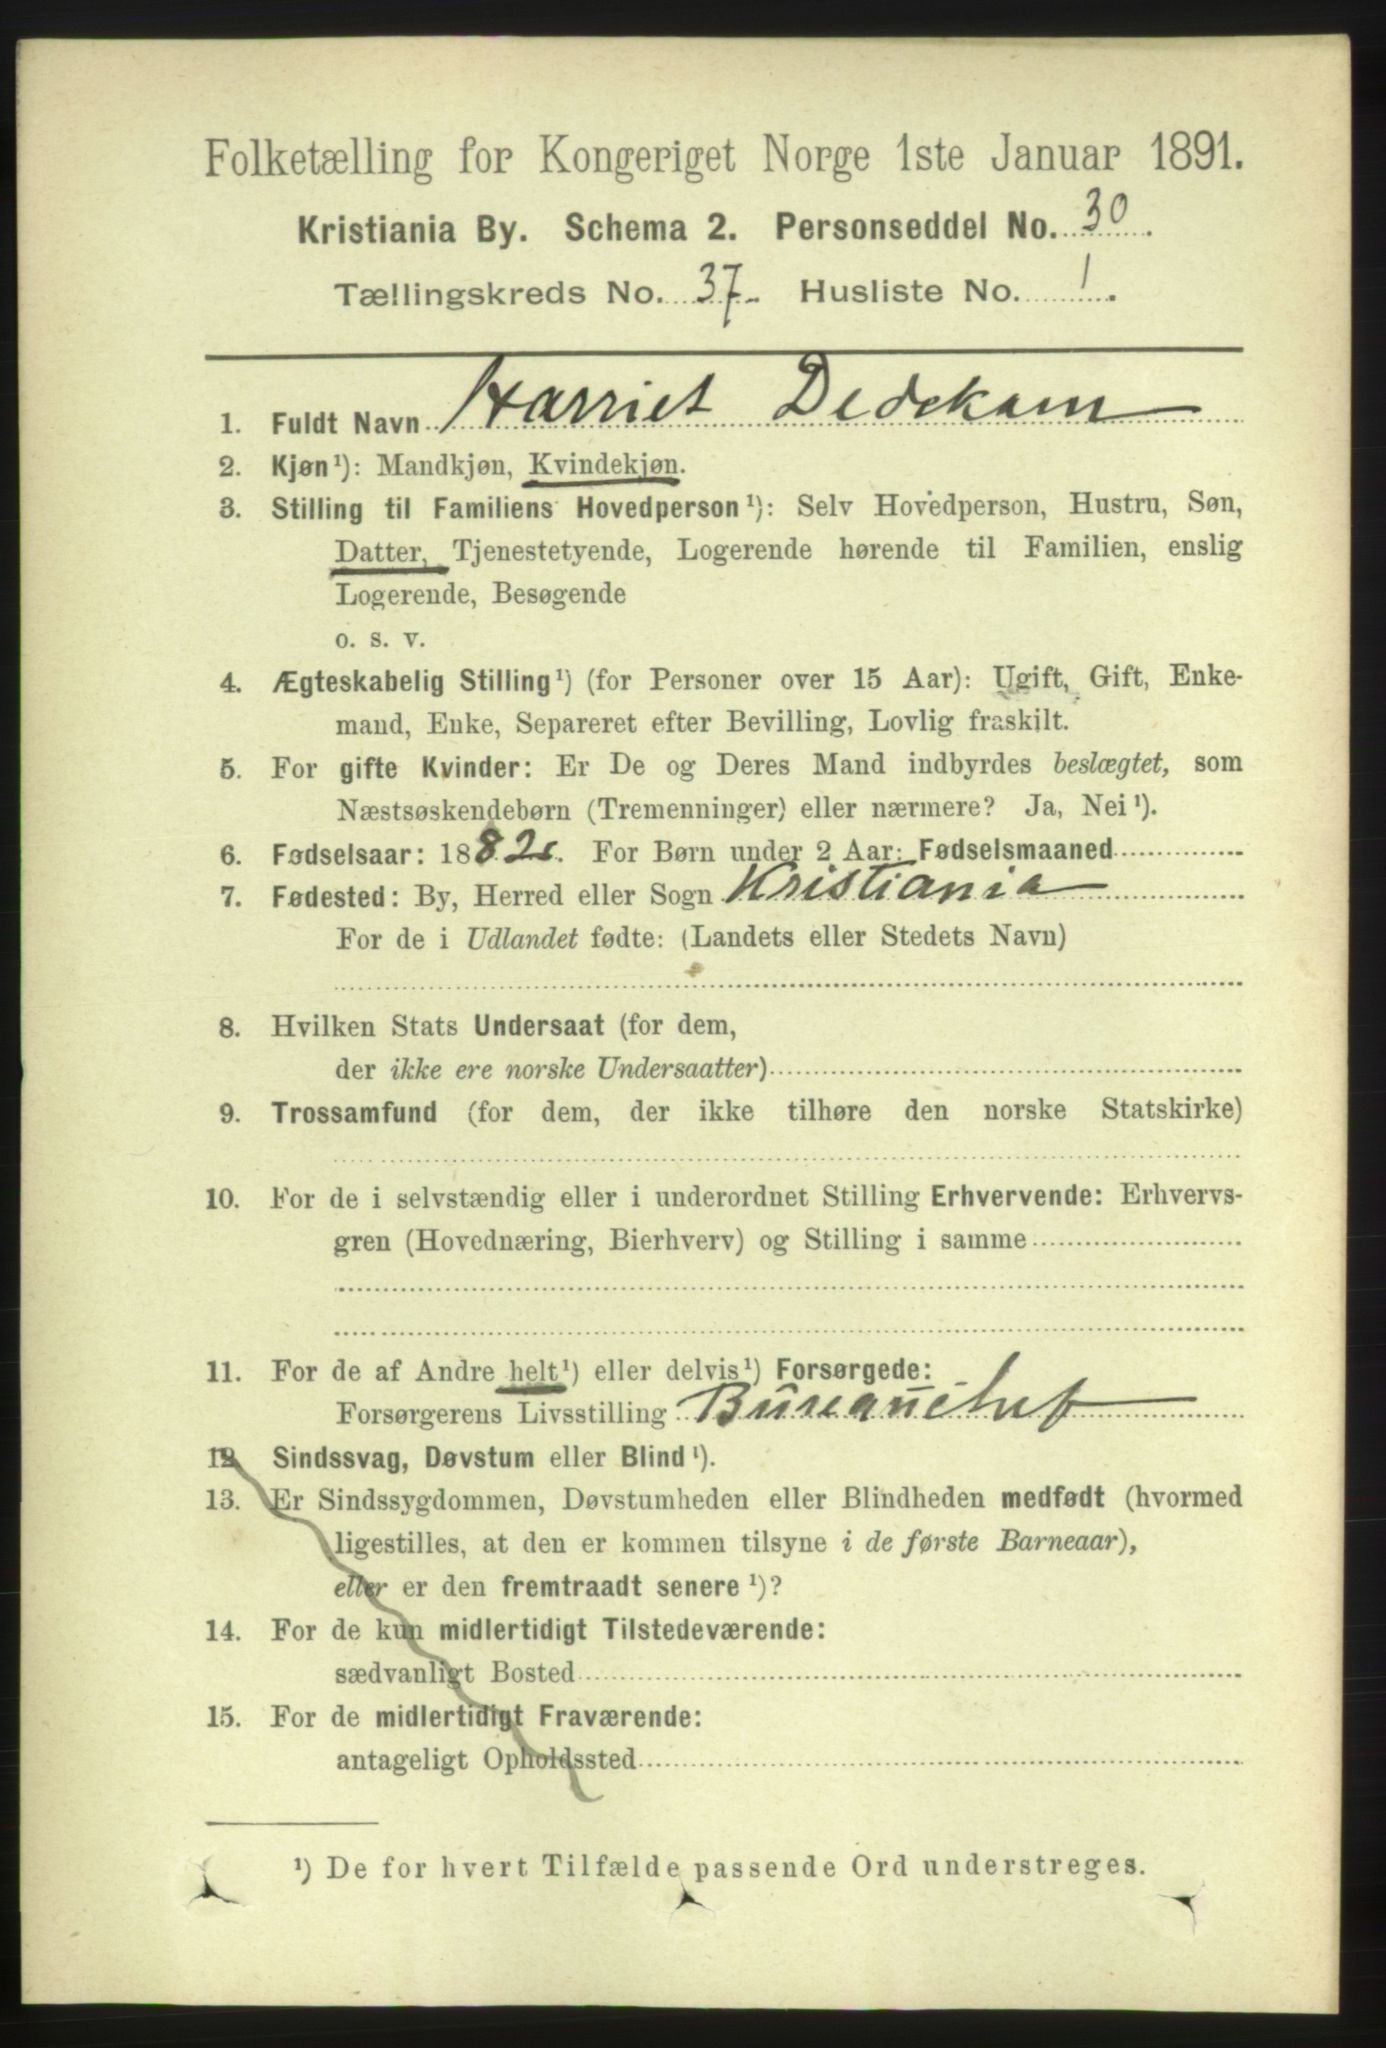 Folketælling for Kongeriget Norge 1ste Januar 1891.
Kristiania By. Schema 2. Personseddel No. 30.
Tællingskreds No. 37. Husliste No. 1.
1. Fuldt Navn Harriet Dedekam
2. Kjøn¹): Mandkjøn, Kvindekjøn.
3. Stilling til Familiens Hovedperson¹): Selv Hovedperson, Hustru, Søn,
Datter, Tjenestetyende, Logerende hørende til Familien, enslig
Logerende, Besøgende
o. s. v.
4. Ægteskabelig Stilling¹) (for Personer over 15 Aar): Ugift, Gift, Enke-
mand, Enke, Separeret efter Bevilling, Lovlig fraskilt.
5. For gifte Kvinder: Er De og Deres Mand indbyrdes beslægtet, som
Næstsøskendebørn (Tremenninger) eller nærmere? Ja, Nei¹).
6. Fødselsaar: 1882. For Børn under 2 Aar: Fødselsmaaned
7. Fødested: By, Herred eller Sogn Kristiania
For de i Udlandet fødte: (Landets eller Stedets Navn)
8. Hvilken Stats Undersaat (for dem,
der ikke ere norske Undersaatter)
9. Trossamfund (for dem, der ikke tilhøre den norske Statskirke)
10. For de i selvstændig eller i underordnet Stilling Erhvervende: Erhvervs-
gren (Hovednæring, Bierhverv) og Stilling i samme
11. For de af Andre helt¹) eller delvis¹) Forsørgede:
Forsørgerens Livsstilling Bureauchef
12. Sindssvag, Døvstum eller Blind¹).
13. Er Sindssygdommen, Døvstumheden eller Blindheden medfødt (hvormed
ligestilles, at den er kommen tilsyne i de første Barneaar),
eller er den fremtraadt senere¹)?
14. For de kun midlertidigt Tilstedeværende:
sædvanligt Bosted
15. For de midlertidigt Fraværende:
antageligt Opholdssted
¹) De for hvert Tilfælde passende Ord understreges.